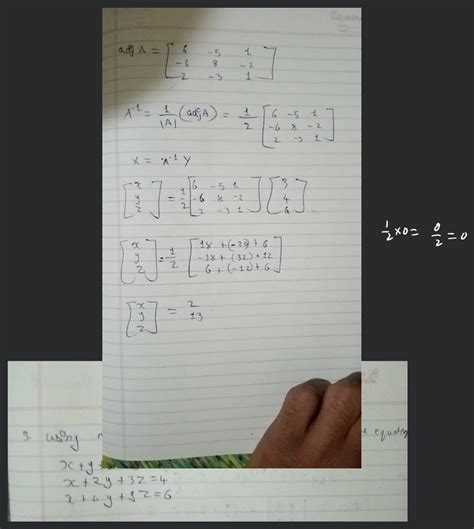 adj A = [ 6 -5 1
-6 8 -2
2 -3 1 ]
A⁻¹ = 1/|A| (adj A) = 1/2 [ 6 -5 1
-6 8 -2
2 -3 1 ]
X = A⁻¹ Y
[ x
y
z ] = 1/2 [ 6 -5 1
-6 8 -2
2 -3 1 ] [ 3
4
6 ]
[ x
y
z ] = 1/2 [ 18 + (-20) + 6
-18 + (32) + 12
6 + (-12) + 6 ]
[ x
y
z ] = 2
13
1/2 × 0 = 0/2 = 0
3 using
x + y +
x + 2y + 3z = 4
x + 4y + 9z = 6